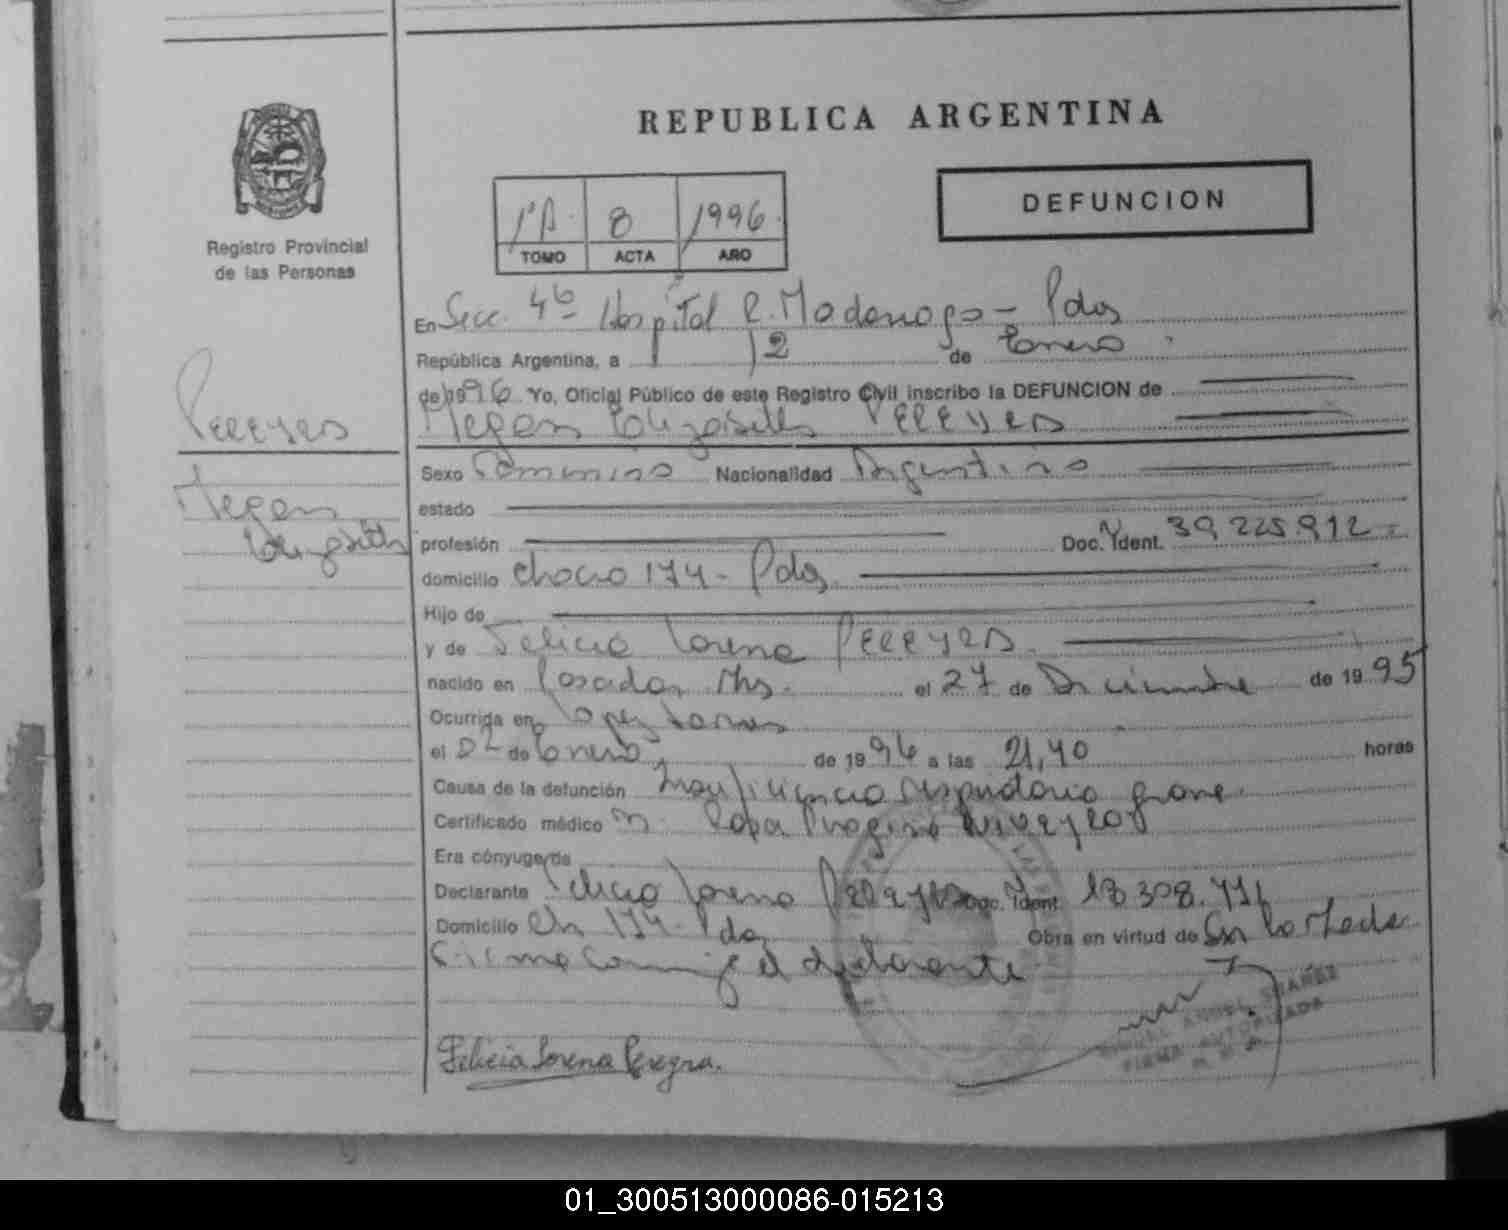 REPUBLICA ARGENTINA
DEFUNCION
1ºA. 8 1996.
TOMO ACTA AÑO
Registro Provincial
de las Personas
En Secc. 4ta Hospital R. Madariaga - Pdas
República Argentina, a 12 de Enero
de 1996 Yo, Oficial Público de este Registro Civil inscribo la DEFUNCION de
Megan Elizabeth PEREYRA
PEREYRA
Megan
Elizabeth
Sexo Femenino Nacionalidad Argentina
estado
profesión Doc. Ident. 39.225.912
domicilio Chaco 174 - Pdas.
Hijo de
y de Felicia Lorena PEREYRA
nacido en Posadas Mns. el 27 de Diciembre de 1995
Ocurrida en
el 02 de Enero de 1996 a las 21,40 horas
Causa de la defunción Insuficiencia respiratoria grave
Certificado médico Rosa
Era cónyuge de
Declarante Felicia Lorena Pereyra Doc. Ident. 18.308.771
Domicilio Ch 174 - Pdas Obra en virtud de
Firma conmigo el declarante
Felicia Lorena Pereyra.
ANGEL SUAREZ
FIRMA AUTORIZADA
01_300513000086-015213